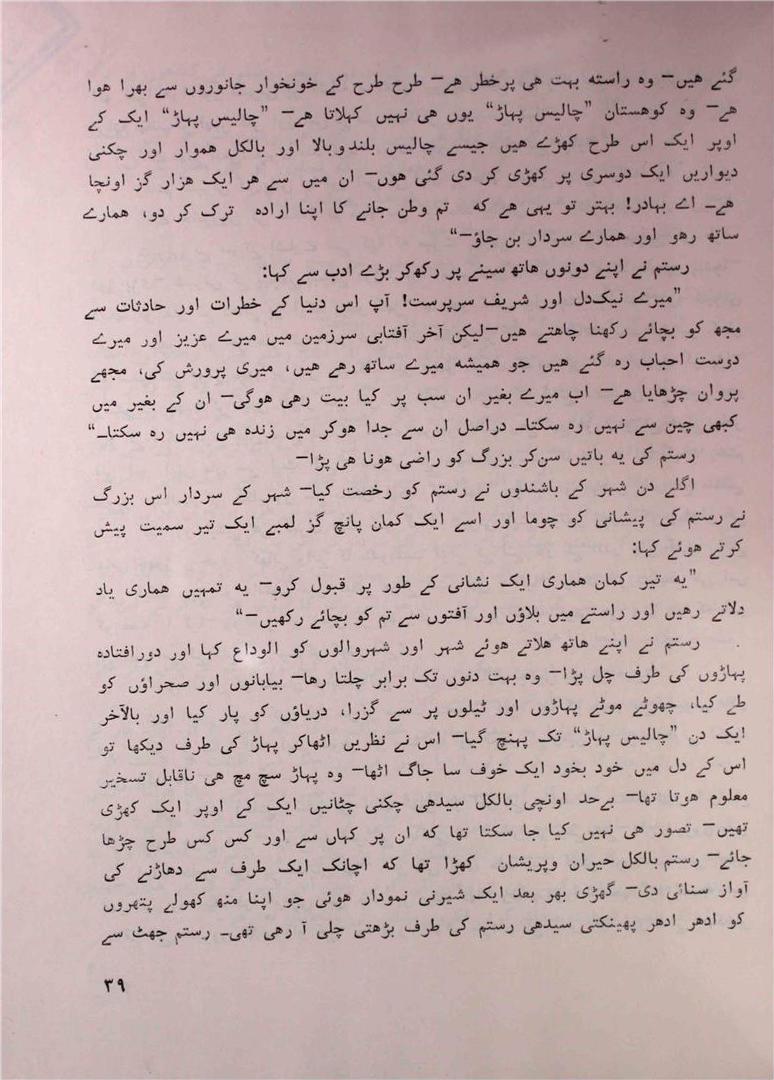 گئے ھیں— وہ راستہ بہت ھی پرخطر ھے— طرح طرح کے خونخوار جانوروں سے بھرا ھوا
ھے— وہ کوھستان ”چالیس پہاڑ“ یوں ھی نہیں کہلاتا ھے— ”چالیس پہاڑ“ ایک کے
اوپر ایک اس طرح کھڑے ھیں جیسے چالیس بلندوبالا اور بالکل ھموار اور چکنی
دیواریں ایک دوسری پر کھڑی کر دی گئی ھوں— ان میں سے ھر ایک ھزار گز اونچا
ھے— اے بہادر! بہتر تو یہی ھے کہ تم وطن جانے کا اپنا ارادہ ترک کر دو، ھمارے
ساتھ رھو اور ھمارے سردار بن جاؤ—“
رستم نے اپنے دونوں ھاتھ سینے پر رکھکر بڑے ادب سے کہا:
”میرے نیک‌دل اور شریف سرپرست! آپ اس دنیا کے خطرات اور حادثات سے
مجھ کو بچائے رکھنا چاھتے ھیں—لیکن آخر آفتابی سرزمین میں میرے عزیز اور میرے
دوست احباب رہ گئے ھیں جو ھمیشہ میرے ساتھ رھے ھیں، میری پرورش کی، مجھے
پروان چڑھایا ھے— اب میرے بغیر ان سب پر کیا بیت رھی ھوگی— ان کے بغیر میں
کبھی چین سے نہیں رہ سکتا— دراصل ان سے جدا ھوکر میں زندہ ھی نہیں رہ سکتا—“
رستم کی یہ باتیں سن‌کر بزرگ کو راضی ھونا ھی پڑا—
اگلے دن شہر کے باشندوں نے رستم کو رخصت کیا— شہر کے سردار اس بزرگ
نے رستم کی پیشانی کو چوما اور اسے ایک کمان پانچ گز لمبے ایک تیر سمیت پیش
کرتے ھوئے کہا:
”یہ تیر کمان ھماری ایک نشانی کے طور پر قبول کرو— یہ تمہیں ھماری یاد
دلاتے رھیں اور راستے میں بلاؤں اور آفتوں سے تم کو بچائے رکھیں—“
رستم نے اپنے ھاتھ ھلاتے ھوئے شہر اور شہروالوں کو الوداع کہا اور دورافتادہ
پہاڑوں کی طرف چل پڑا— وہ بہت دنوں تک برابر چلتا رھا— بیابانوں اور صحراؤں کو
طے کیا، چھوٹے موٹے پہاڑوں اور ٹیلوں پر سے گزرا، دریاؤں کو پار کیا اور بالآخر
ایک دن ”چالیس پہاڑ“ تک پہنچ گیا— اس نے نظریں اٹھاکر پہاڑ کی طرف دیکھا تو
اس کے دل میں خود بخود ایک خوف سا جاگ اٹھا— وہ پہاڑ سچ مچ ھی ناقابل تسخیر
معلوم ھوتا تھا— بےحد اونچی بالکل سیدھی چکنی چٹانیں ایک کے اوپر ایک کھڑی
تھیں— تصور ھی نہیں کیا جا سکتا تھا کہ ان پر کہاں سے اور کس کس طرح چڑھا
جائے— رستم بالکل حیران وپریشان کھڑا تھا کہ اچانک ایک طرف سے دھاڑنے کی
آواز سنائی دی— گھڑی بھر بعد ایک شیرنی نمودار ھوئی جو اپنا منھ کھولے پتھروں
کو ادھر ادھر پھینکتی سیدھی رستم کی طرف بڑھتی چلی آ رھی تھی— رستم جھٹ سے
۳۹